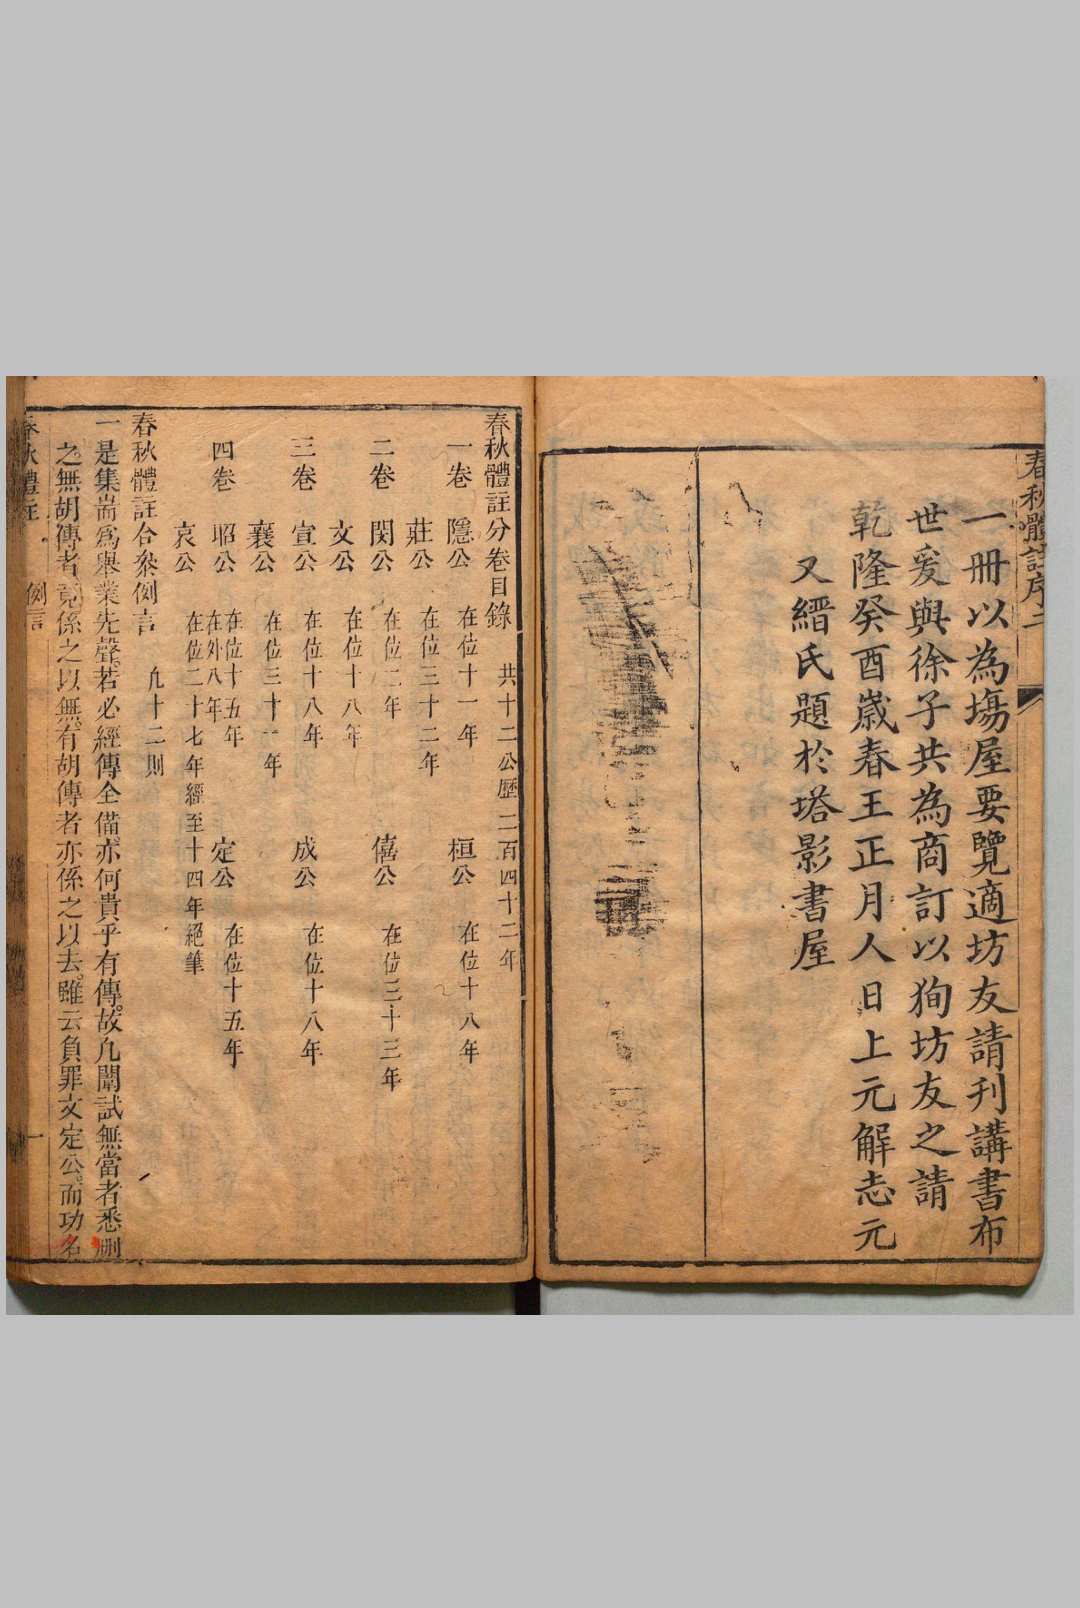 春秋體註序 二
一冊以為塲屋要覽適坊友請刊講書布
世爰與徐子共為商訂以狥坊友之請
乾隆癸酉歲春王正月人日上元解志元
又縉氏題於塔影書屋
春秋體註分卷目錄 共十二公歷二百四十二年
一卷 隱公 在位十一年 桓公 在位十八年
莊公 在位三十二年
二卷 閔公 在位二年 僖公 在位三十三年
文公 在位十八年
三卷 宣公 在位十八年 成公 在位十八年
襄公 在位三十一年
四卷 昭公 在位十五年 在外八年 定公 在位十五年
哀公 在位二十七年經至十四年絕筆
春秋體註合叅例言 凢十二則
一是集耑為舉業先聲若必經傳全備亦何貴乎有傳故凢闈試無當者悉刪
之無胡傳者竟係之以無有胡傳者亦係之以去雖云負罪文定公而功名
春秋體註 例言 一